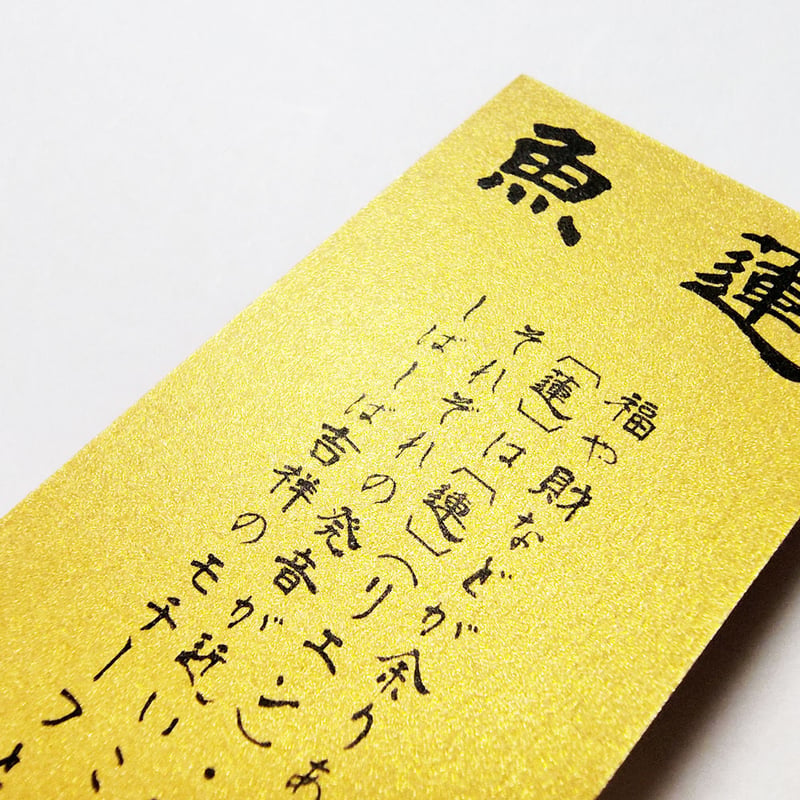 蓮
魚
福や財などが余りあ
〔蓮〕は〔連〕(リエン)・
それぞれの発音が近い
しばしば吉祥のモチーフ